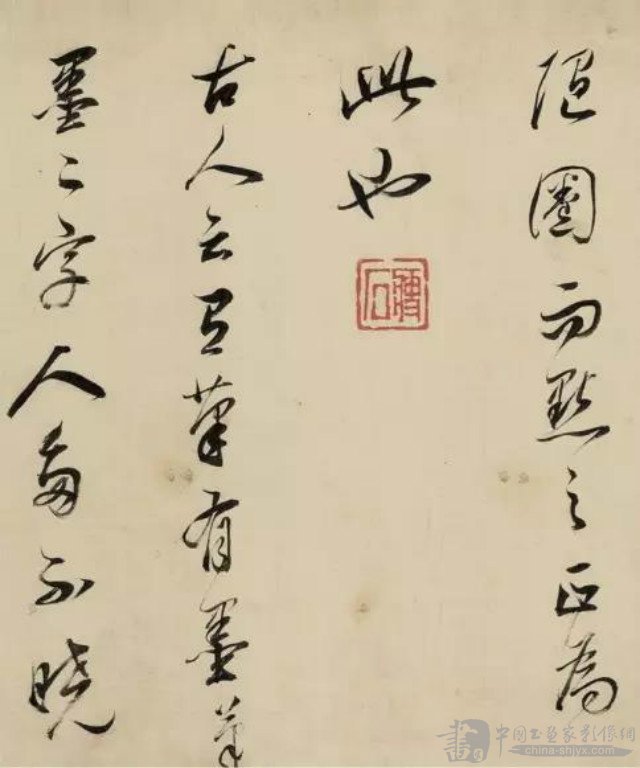 圈而點之正為
此也
古人云有筆有墨筆
墨二字人多不曉
中國书画家影像網
china-shjyx.com